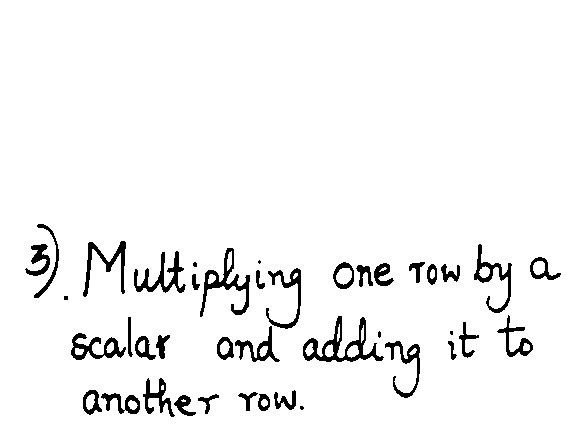 3). Multiplying one row by a
scalar and adding it to
another row.